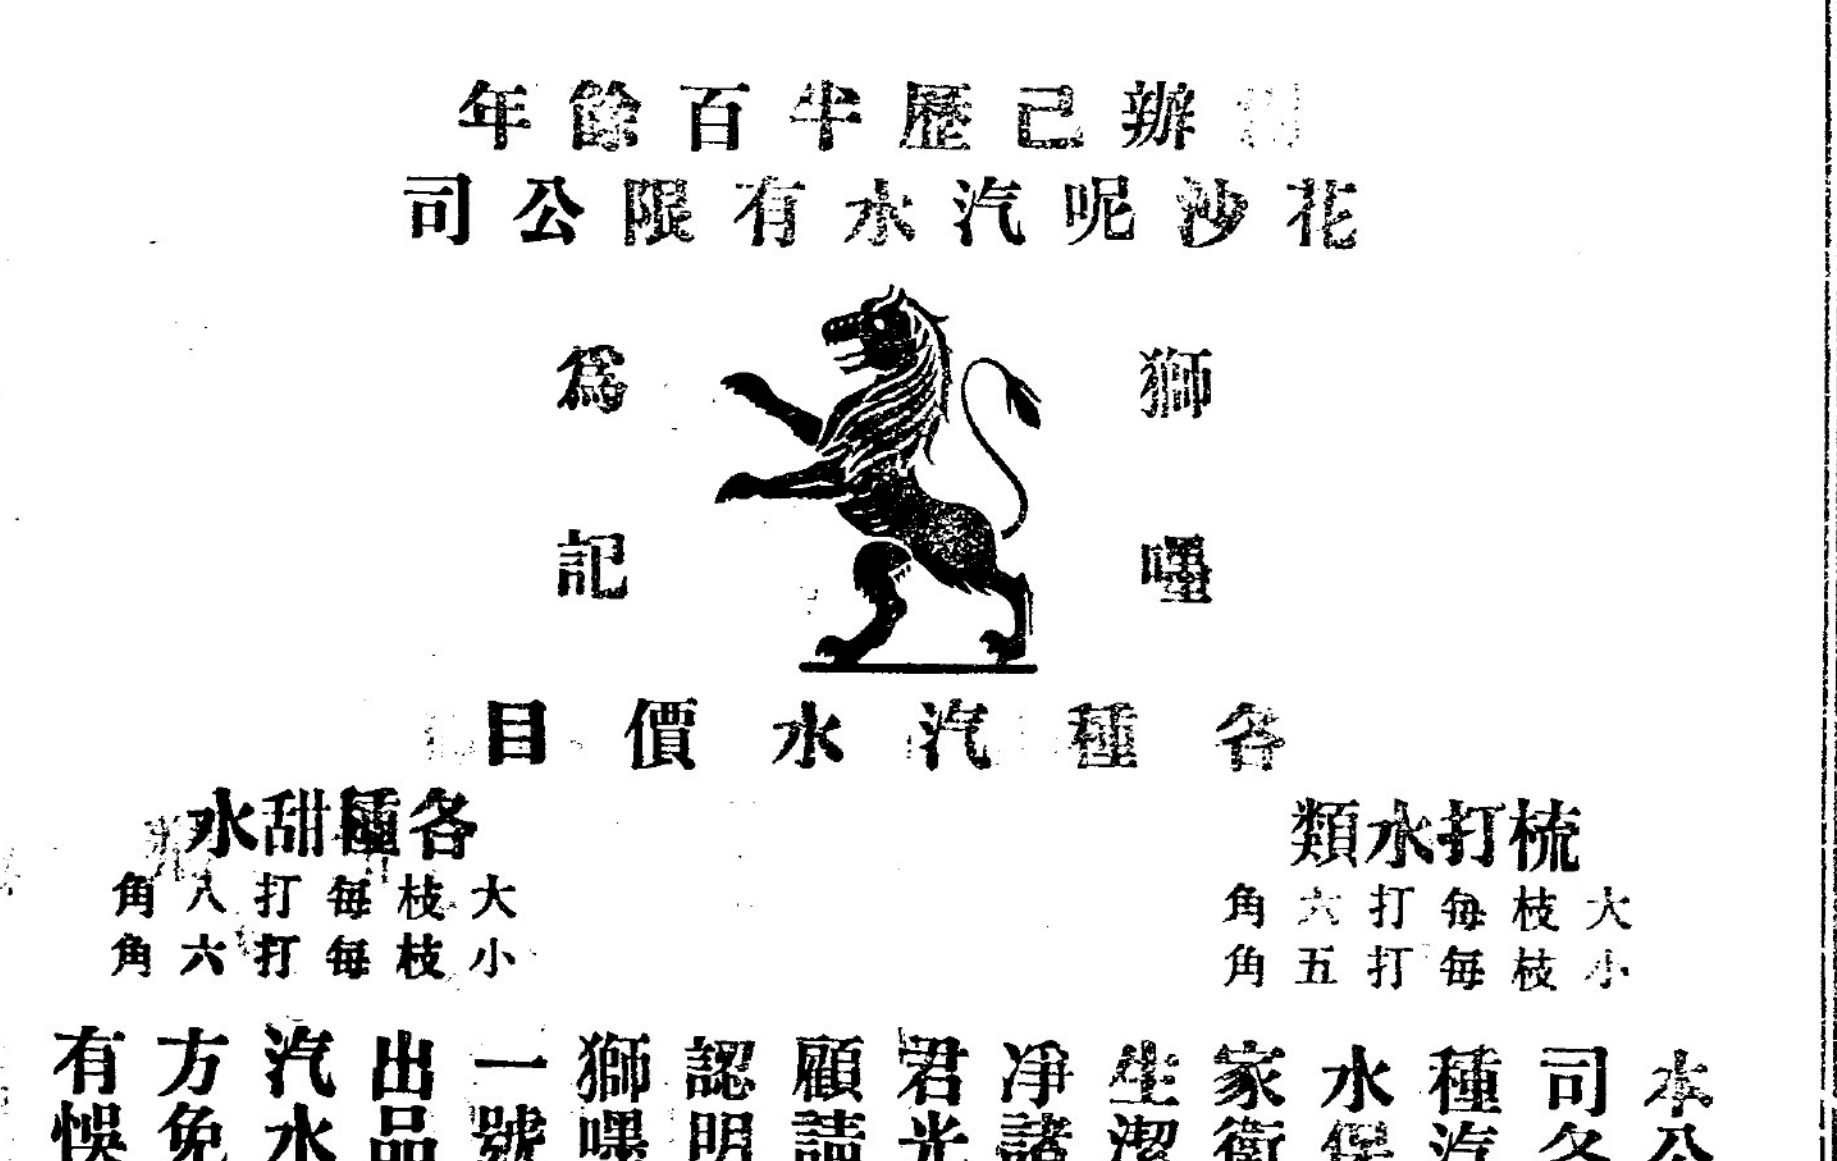 辦己歷半百餘年
花沙呢汽水有限公司
獅嚜
為記
各種汽水價目
梳打水類
大枝每打六角
小枝每打五角
各種甜水
大枝每打八角
小枝每打六角
本公
司各
種汽
水保
家衛
生潔
淨諸
君光
顧請
認明
獅嚜
一號
出品
汽水
方免
有悞